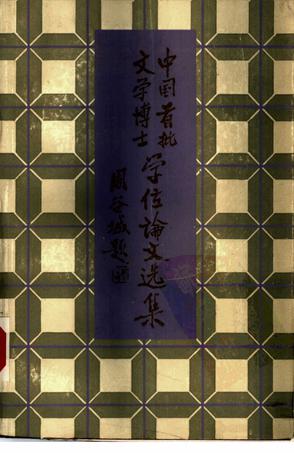 中国首批
文学博士
学位論文选集
周谷城题